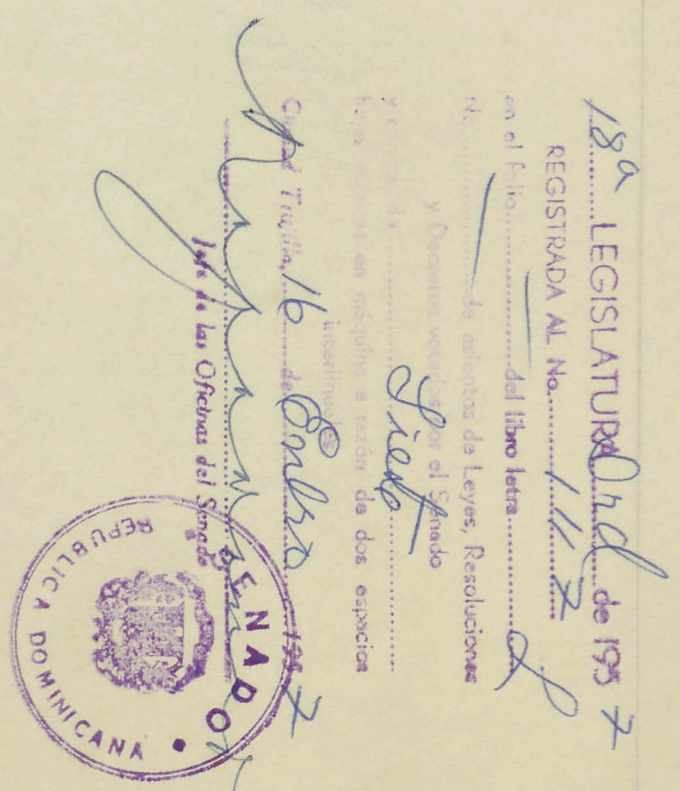 18ª LEGISLATURA Ord de 1957
REGISTRADA AL No. 1117
en el folio del libro letra
No. de asientos de Leyes, Resoluciones
y Decretos votados por el Senado
y
hojas escritas en máquina a razón de dos espacios
interlineales
Ciudad Trujillo, 16 de Enero 1957
Jefe de las Oficinas del Senado
SENADO
REPUBLICA DOMINICANA